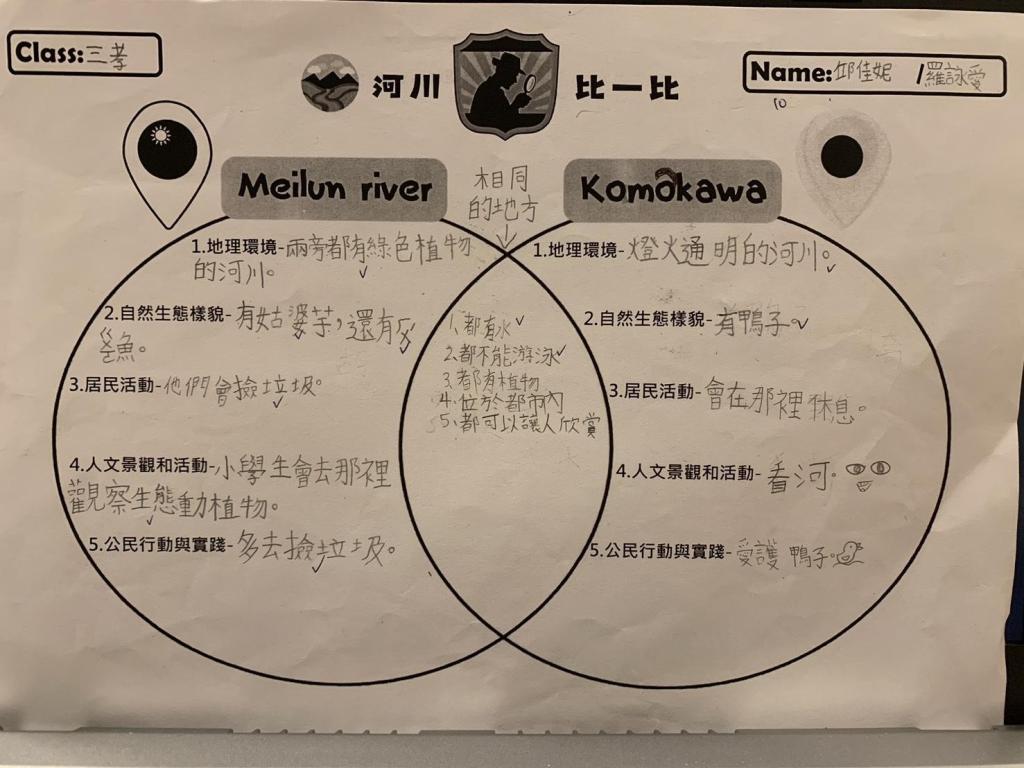 Class:三孝
河川 比一比
Name:邱佳妮 /羅詠愛
10
Meilun river
相同
的地方
Komōkawa
1.地理環境-兩旁都有綠色植物
的河川。
2.自然生態樣貌-有姑婆芋,還有
魚。
3.居民活動-他們會撿垃圾。
4.人文景觀和活動-小學生會去那裡
觀察生態動植物。
5.公民行動與實踐-多去撿垃圾。
1.都有水
2.都不能游泳
3.都有植物
4.位於都市內
5.都可以讓人欣賞
1.地理環境-燈火通明的河川。
2.自然生態樣貌-有鴨子。
3.居民活動-會在那裡休息。
4.人文景觀和活動-看河。
5.公民行動與實踐-愛護鴨子。